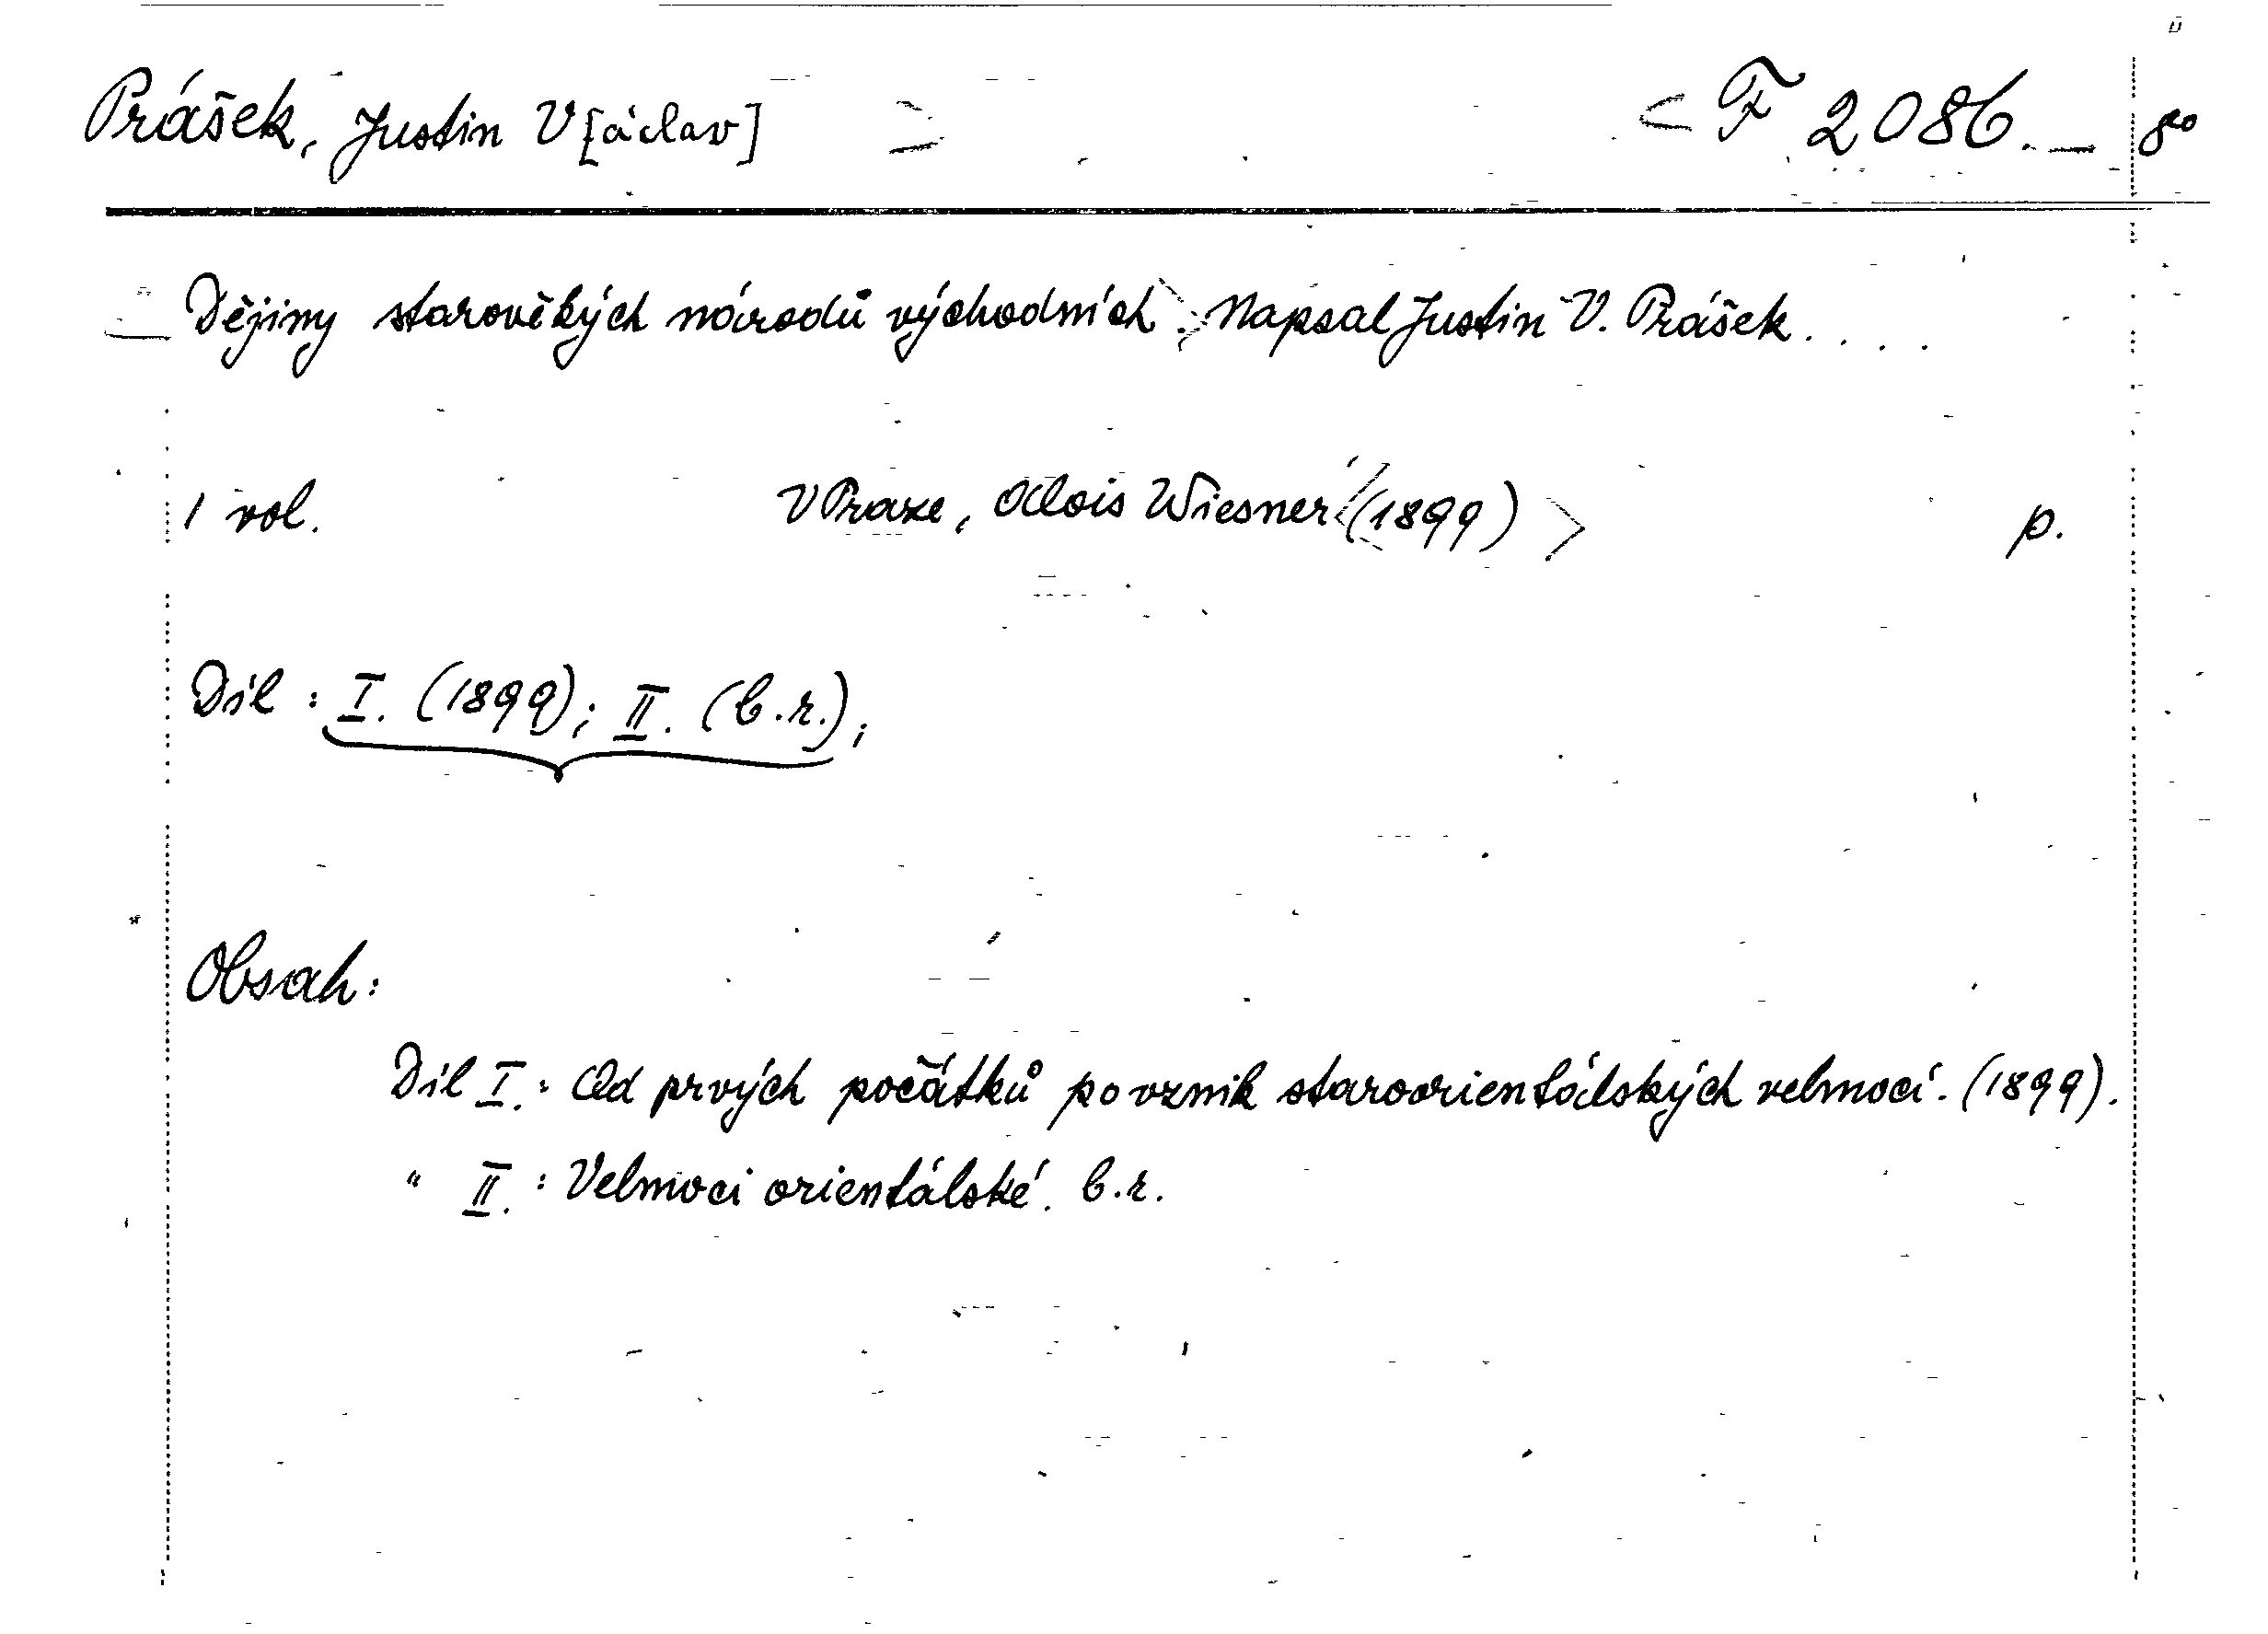 Prášek, Justin V[áclav] F 2086. 8°
Dějiny starověkých národů východních. Napsal Justin V. Prášek....
1 vol. V Praze, Alois Wiesner (1899) p.
Díl: I. (1899); II. (b.r.);
Obsah:
Díl I.: Od prvých počátků po vznik staroorientálských velmocí. (1899).
" II.: Velmoci orientálské. b.r.